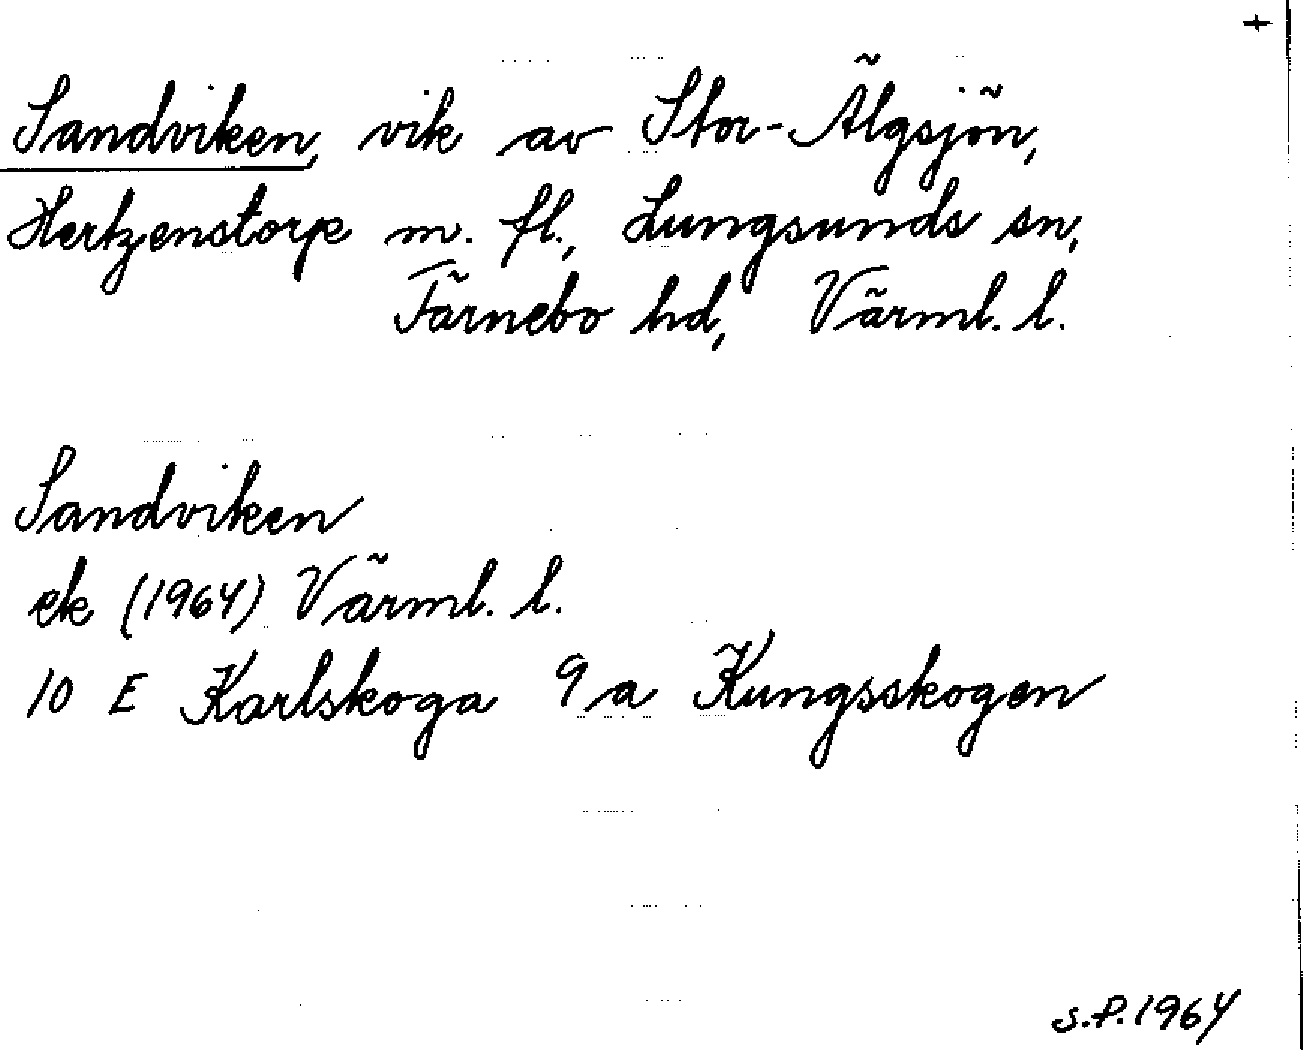 +
Sandviken, vik av Stor-Älgsjön,
Hertzenstorp m. fl., Lungsunds sn,
Färnebo hd, Värml. l.
Sandviken
ek (1964) Värml. l.
10 E Karlskoga 9a Kungsskogen
S.P. 1964